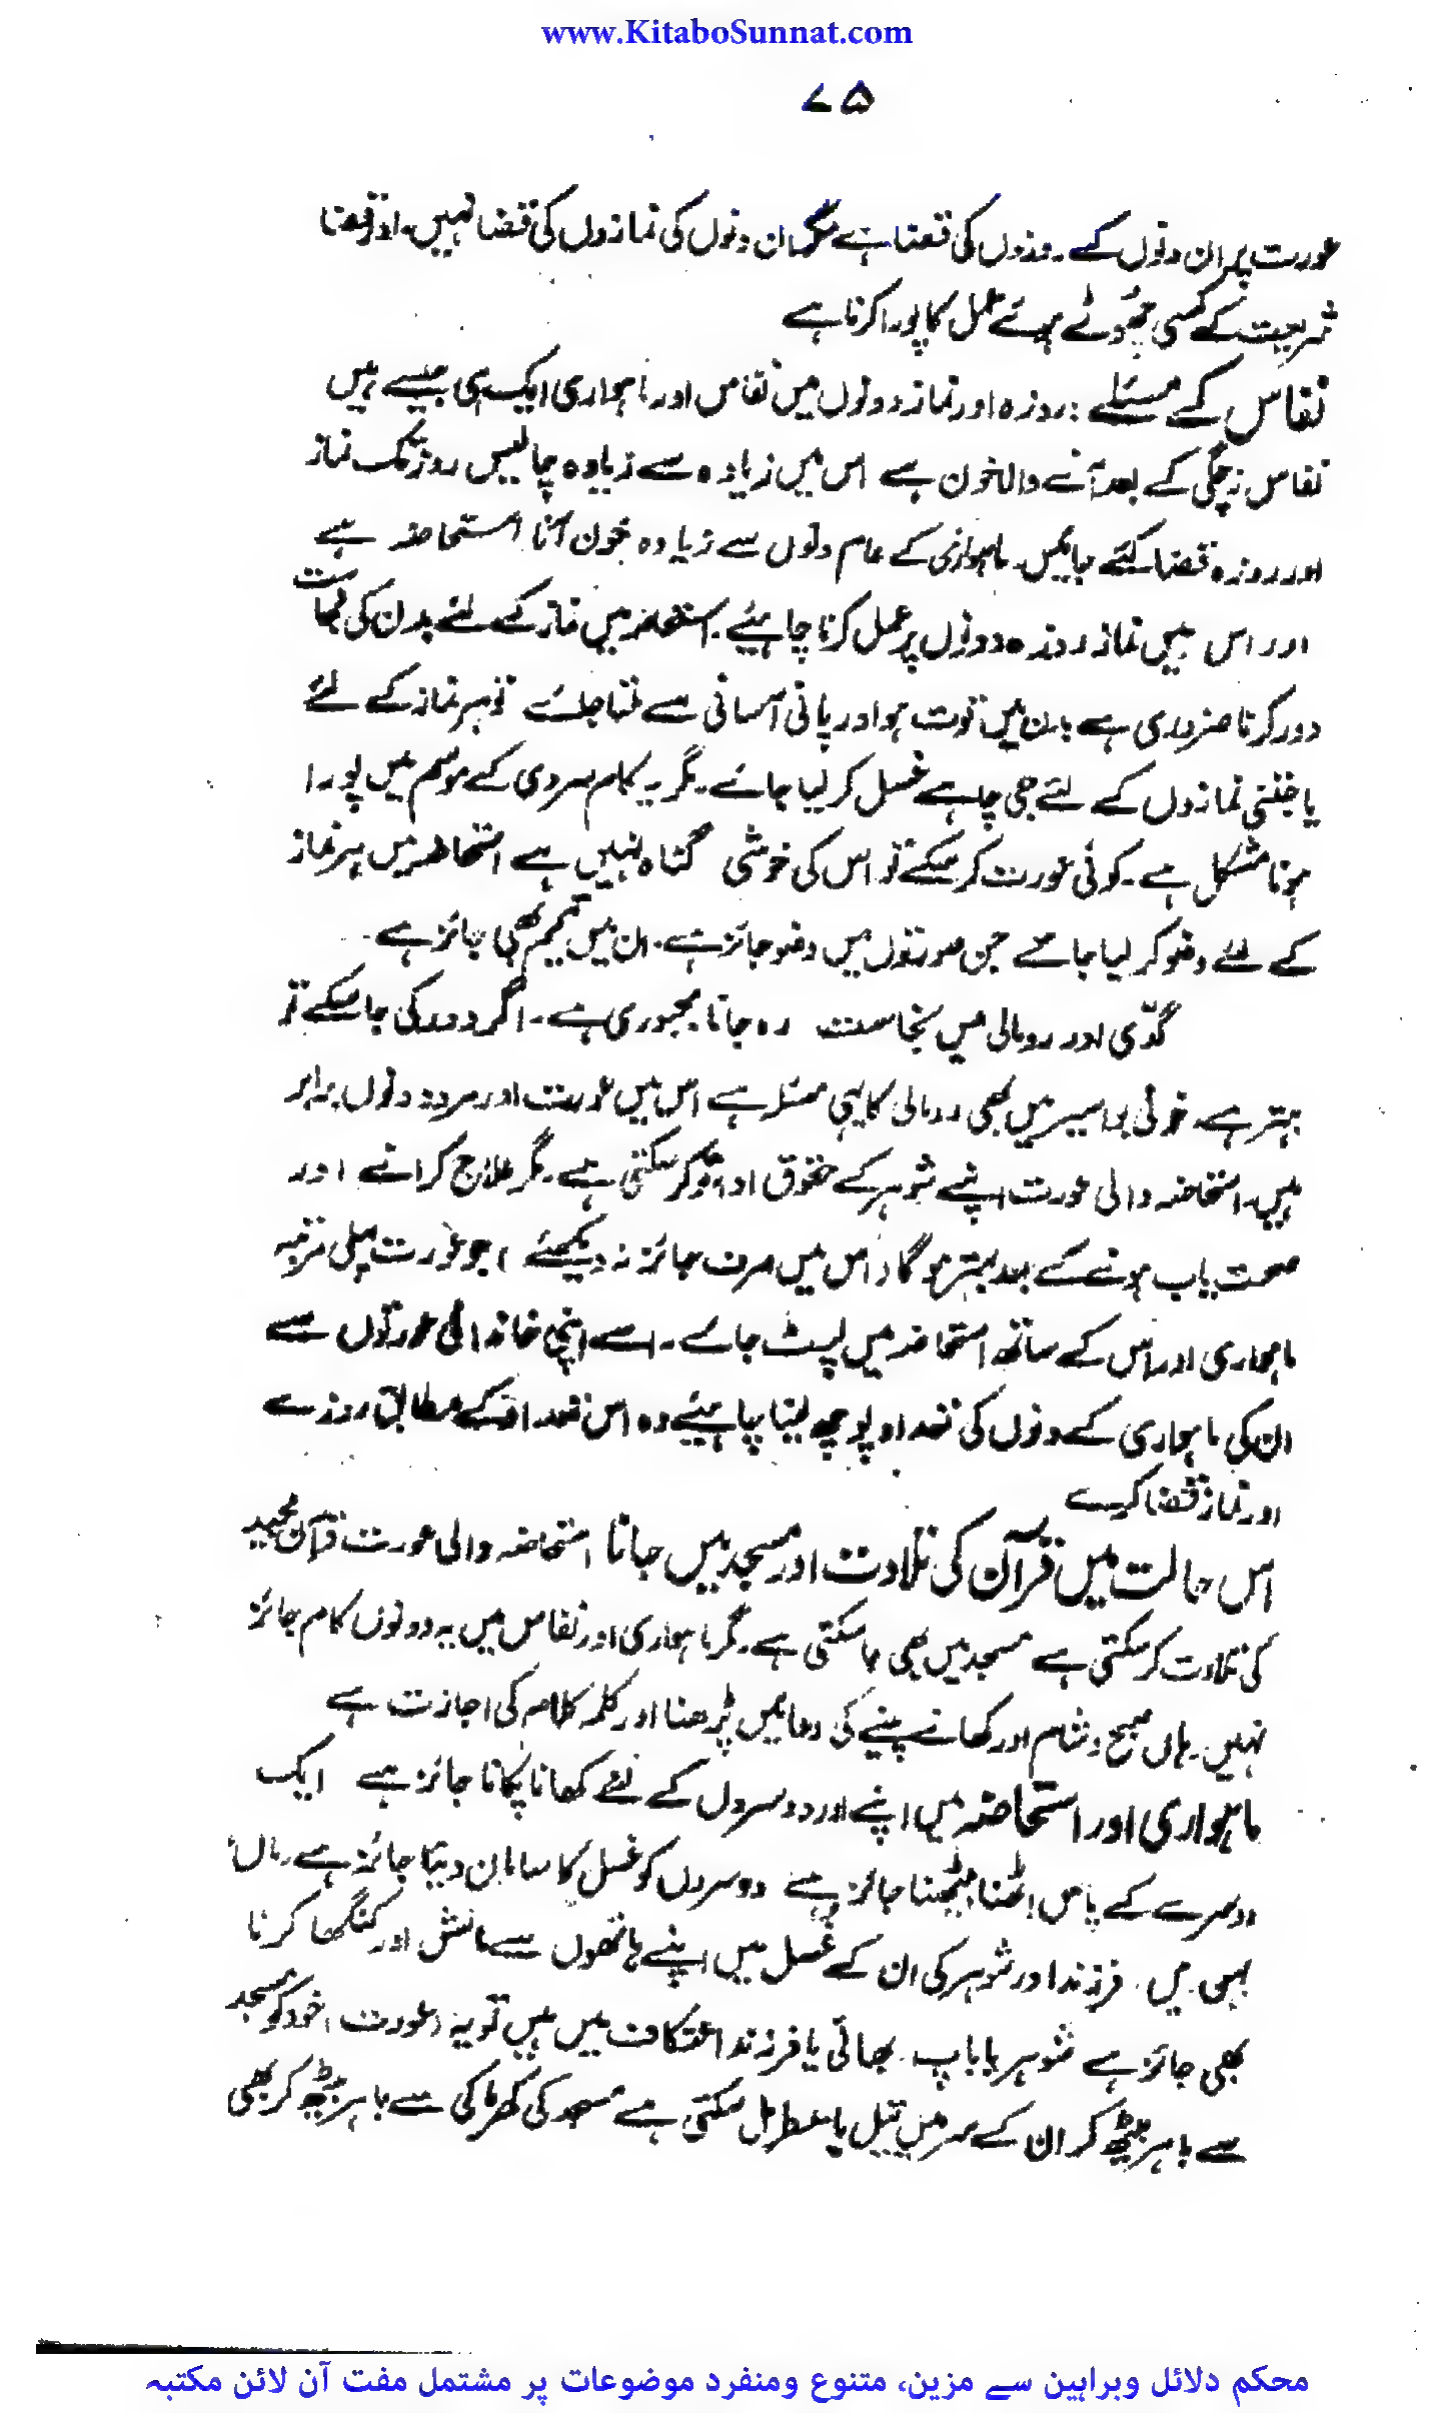 www.KitaboSunnat.com
۷۵
عورت پر ان دنوں کے روزوں کی قضا ہے مگر ان دنوں کی نمازوں کی قضا نہیں۔ اور قضا
شریعت کے کسی چھوٹے ہوئے عمل کا پورا کرنا ہے
نفاس کے مسئلے : روزہ اور نماز دونوں میں نفاس اور ماہواری ایک ہی جیسے ہیں
نفاس زچگی کے بعد آنے والا خون ہے اس میں زیادہ سے زیادہ چالیس روز تک نماز
اور روزہ قضا کئے جائیں۔ ماہواری کے عام دنوں سے زیادہ خون آنا استحاضہ ہے
اور اس میں نماز روزہ دونوں پر عمل کرنا چاہیئے۔ استحاضہ میں نماز کے لئے بدن کی نجاست
دور کرنا ضروری ہے بدن میں قوت ہو اور پانی آسانی سے ملتا جائے تو ہر نماز کے لئے
یا جتنی نمازوں کے لئے جی چاہے غسل کر لیا جائے۔ مگر یہ کام سردی کے موسم میں پورا
ہونا مشکل ہے۔ کوئی عورت کر سکے تو اس کی خوشی گناہ نہیں ہے استحاضہ میں ہر نماز
کے لئے وضو کر لیا جائے جن صورتوں میں وضو جائز ہے۔ ان میں تیمم بھی جائز ہے۔
گدّی اور رومالی میں نجاست رہ جانا مجبوری ہے۔ اگر دور کی جا سکے تو
بہتر ہے۔ خونی بواسیر میں بھی رومالی کا یہی مسئلہ ہے اس میں عورت اور مرد دونوں برابر
ہیں۔ استحاضہ والی عورت اپنے شوہر کے حقوق ادا تو کر سکتی ہے۔ مگر علاج کرانے اور
صحت یاب ہونے کے بعد بہتر ہو گا (اس میں صرف جائز نہ دیکھئے) جو عورت پہلی مرتبہ
ماہواری اور اس کے ساتھ استحاضہ میں لپٹ جائے۔ اسے اپنی خاندانی عورتوں سے
ان کی ماہواری کے دنوں کی تعداد پوچھ لینا چاہیئے وہ اس تعداد کے مطابق روزے
اور نماز قضا کرے
اس حالت میں قرآن کی تلاوت اور مسجد میں جانا استحاضہ والی عورت قرآن مجید
کی تلاوت کر سکتی ہے مسجد میں بھی جا سکتی ہے۔ مگر ماہواری اور نفاس میں یہ دونوں کام جائز
نہیں۔ ہاں صبح و شام اور کھانے پینے کی دعائیں پڑھنا اور کلمہ کلام کی اجازت ہے
ماہواری اور استحاضہ میں اپنے اور دوسروں کے لئے کھانا پکانا جائز ہے ایک
دوسرے کے پاس اٹھنا بیٹھنا جائز ہے دوسروں کو غسل کا سامان دینا جائز ہے۔ ماں
میں۔ فرزند اور شوہر کی ان کے غسل میں اپنے ہاتھوں سے مالش اور کنگھا کرنا
بھی جائز ہے شوہر یا باپ۔ بھائی یا فرزند اعتکاف میں ہیں تو یہ (عورت) خود کو مسجد
سے باہر بیٹھ کر ان کے سر میں تیل یا عطر مل سکتی ہے مسجد کی کھڑکی سے باہر بیٹھ کر بھی
محکم دلائل وبراہین سے مزین، متنوع ومنفرد موضوعات پر مشتمل مفت آن لائن مکتبہ